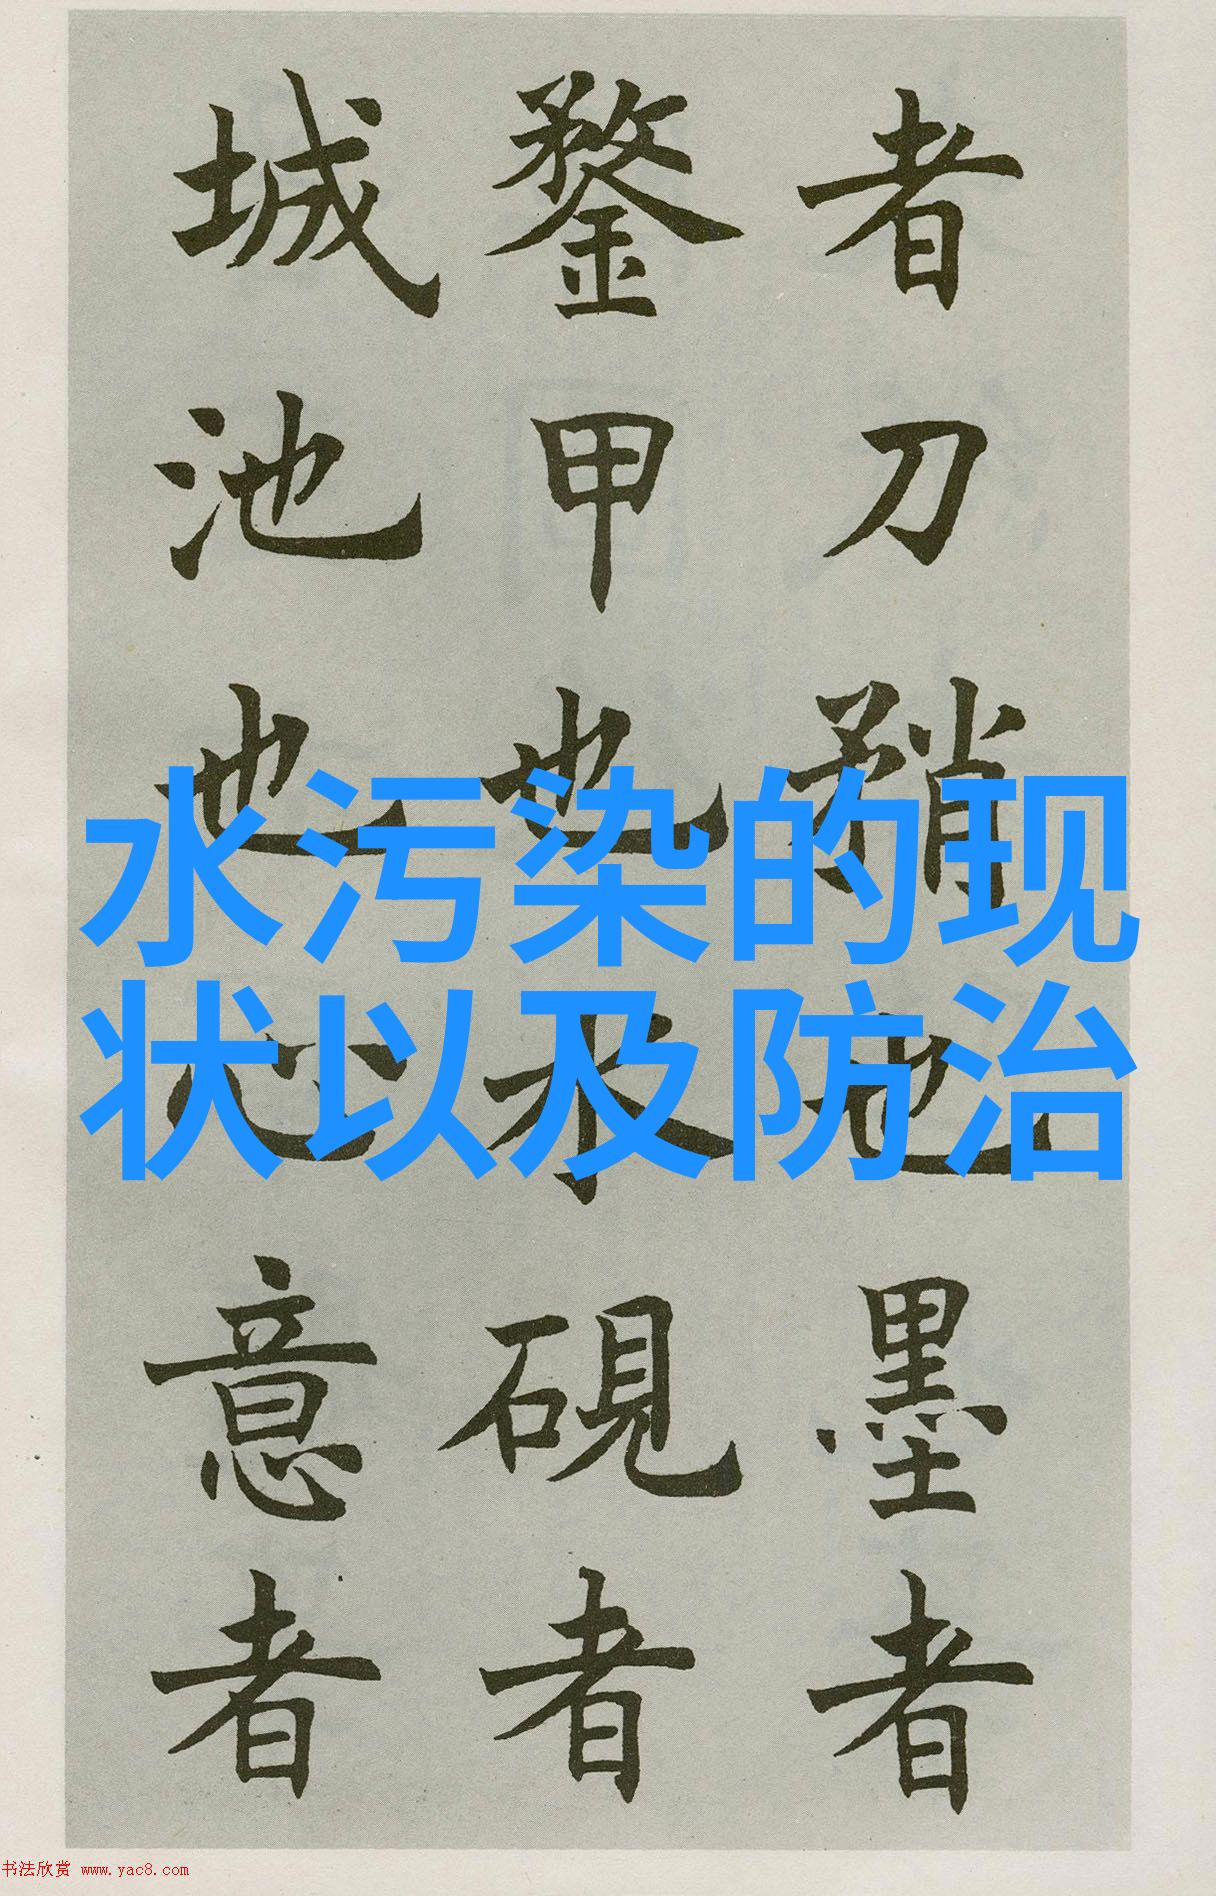 者刀矟也墨者
鍪甲也水硯者
城池也心意者
水污染的现
状以及防治
书法欣赏 www.yac8.com